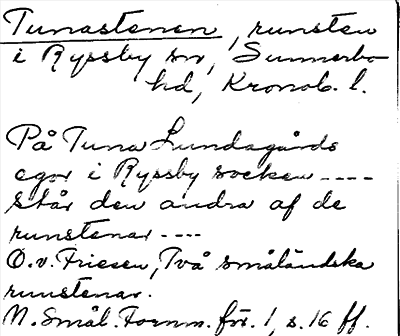 Tunastenen, runsten
i Ryssby sn, Sunnerbo
hd, Kronob. l.
På Tuna Lundagårds
egor i Ryssby socken ----
står den andra af de
runstenar ----
O. v. Friesen, Två småländska
runstenar.
M. Smål. Fornm. för. 1, s. 16 ff.